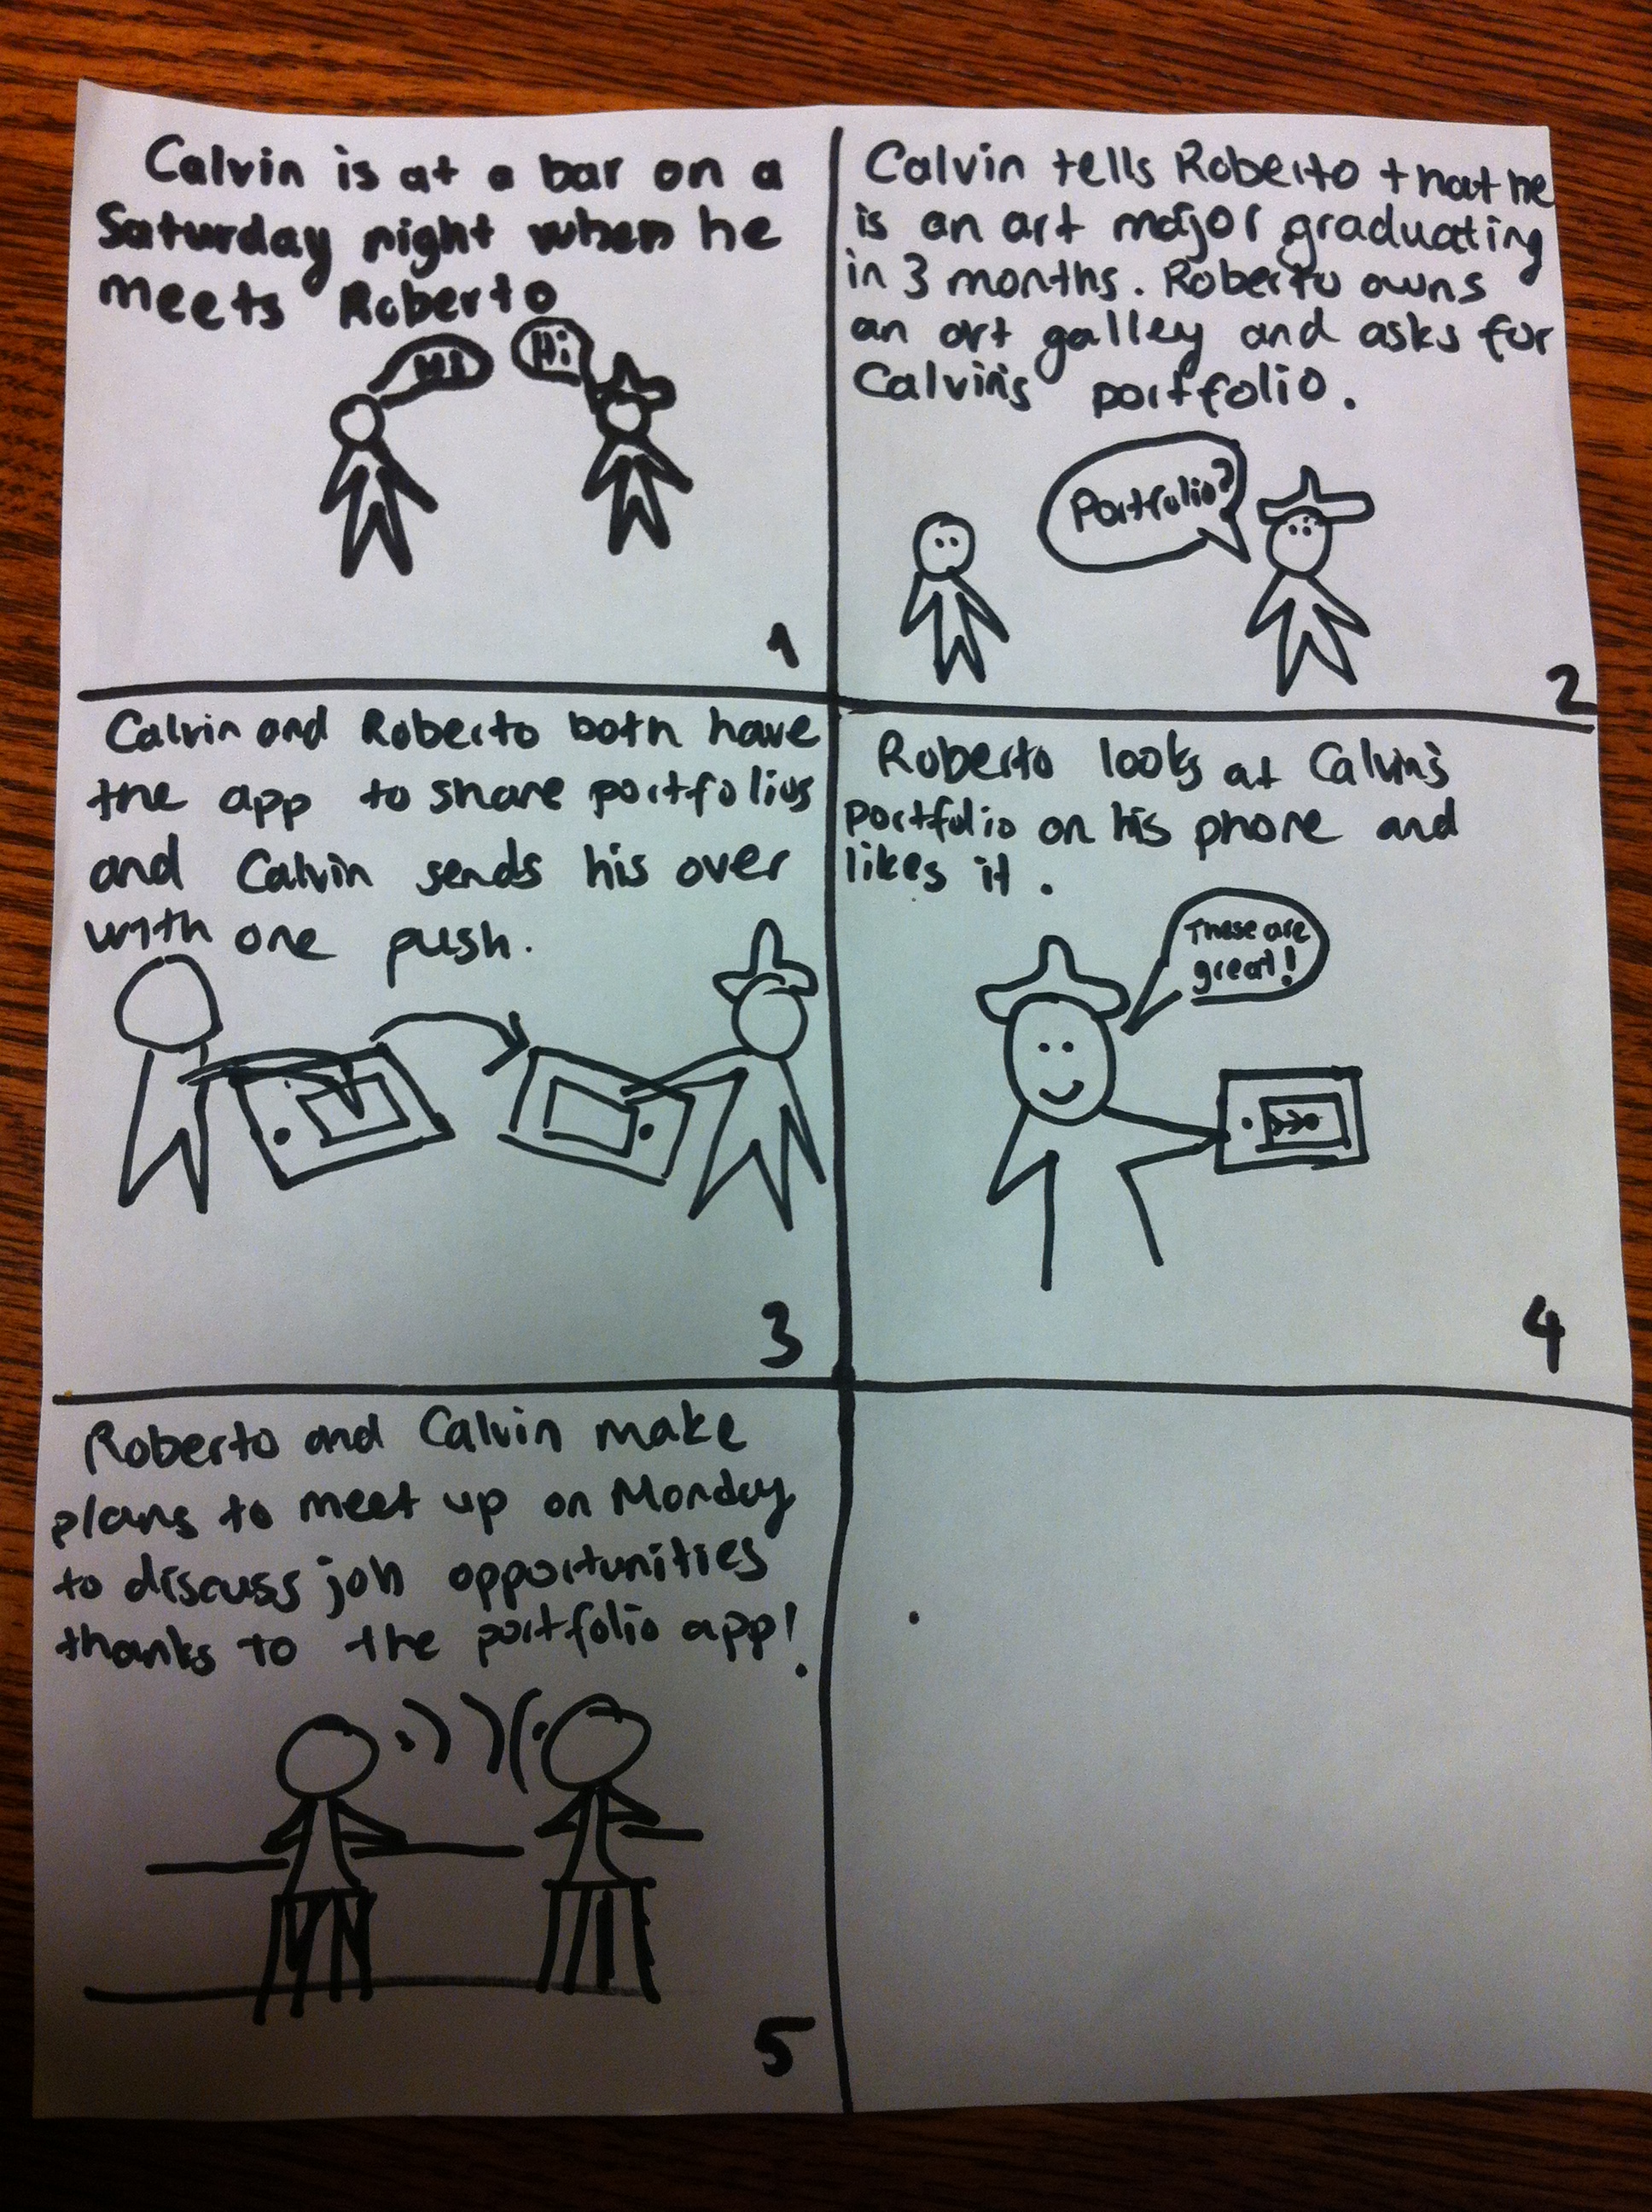 Calvin is at a bar on a
Saturday night when he
meets Roberto
Hi
Hi
1
Calvin tells Roberto that he
is an art major graduating
in 3 months. Roberto owns
an art galley and asks for
Calvin's portfolio.
Portfolio?
2
Calvin and Roberto both have
the app to share portfolios
and Calvin sends his over
with one push.
3
Roberto looks at Calvin's
portfolio on his phone and
likes it.
These are
great!
4
Roberto and Calvin make
plans to meet up on Monday
to discuss job opportunities
thanks to the portfolio app!
:) ) (:
5